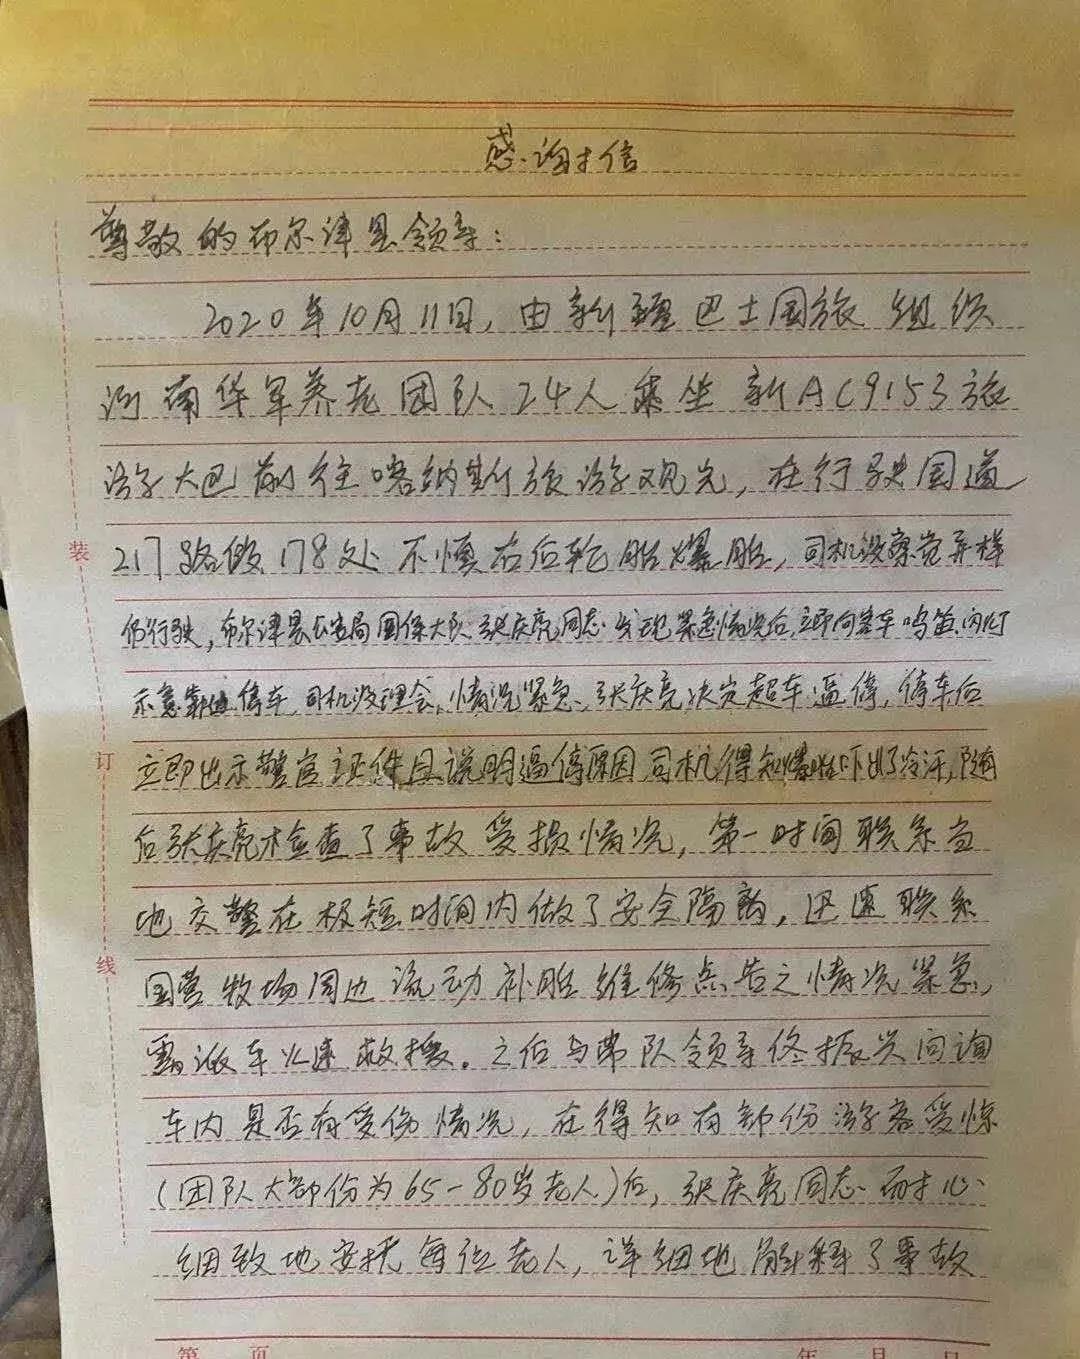 感谢信
尊敬的布尔津县领导：
2020年10月11日，由新疆巴士国旅组织
河南华军养老团队24人乘坐新AC9153旅
游大巴前往喀纳斯旅游观光，在行驶国道
217路段178处不慎右后轮胎爆胎，司机没察觉异样
仍行驶，布尔津县公安局国保大队张庆亮同志发现紧急情况后，立即向客车鸣笛、闪灯
示意靠边停车，司机没理会，情况紧急，张庆亮决定超车逼停，停车后
立即出示警官证件且说明逼停原因，司机得知爆胎吓出了冷汗，随
后张庆亮检查了事故受损情况，第一时间联系当
地交警在极短时间内做了安全隔离，迅速联系
国营牧场周边流动补胎维修点告之情况紧急，
需派车火速救援。之后与带队领导佟振兴问询
车内是否有受伤情况，在得知有部份游客受惊
（团队大部份为65-80岁老人）后，张庆亮同志耐心
细致地安抚每位老人，详细地解释了事故
装
订
线
第 页 年 月 日